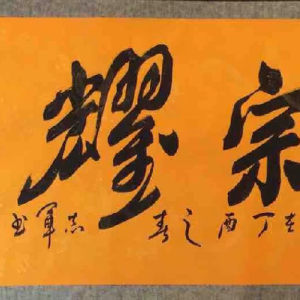 宗耀
丁酉之春志軍书